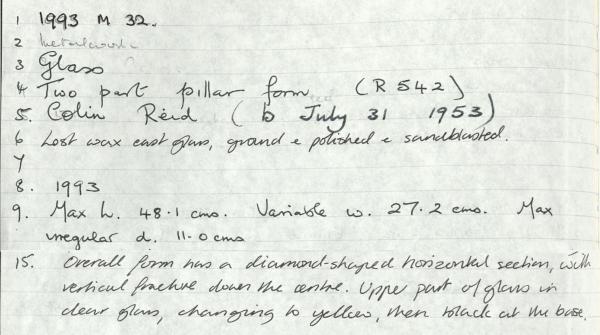 1 1993 M 32.
2 Metalwork
3 Glass
4 Two part pillar form (R 542)
5. Colin Reid (b July 31 1953)
6 Lost wax cast glass, ground & polished & sandblasted.
7
8. 1993
9. Max h. 48.1 cms. Variable w. 27.2 cms. Max
irregular d. 11.0 cms
15. Overall form has a diamond-shaped horizontal section, with
vertical fracture down the centre. Upper part of glass in
clear glass, changing to yellow, then black at the base.